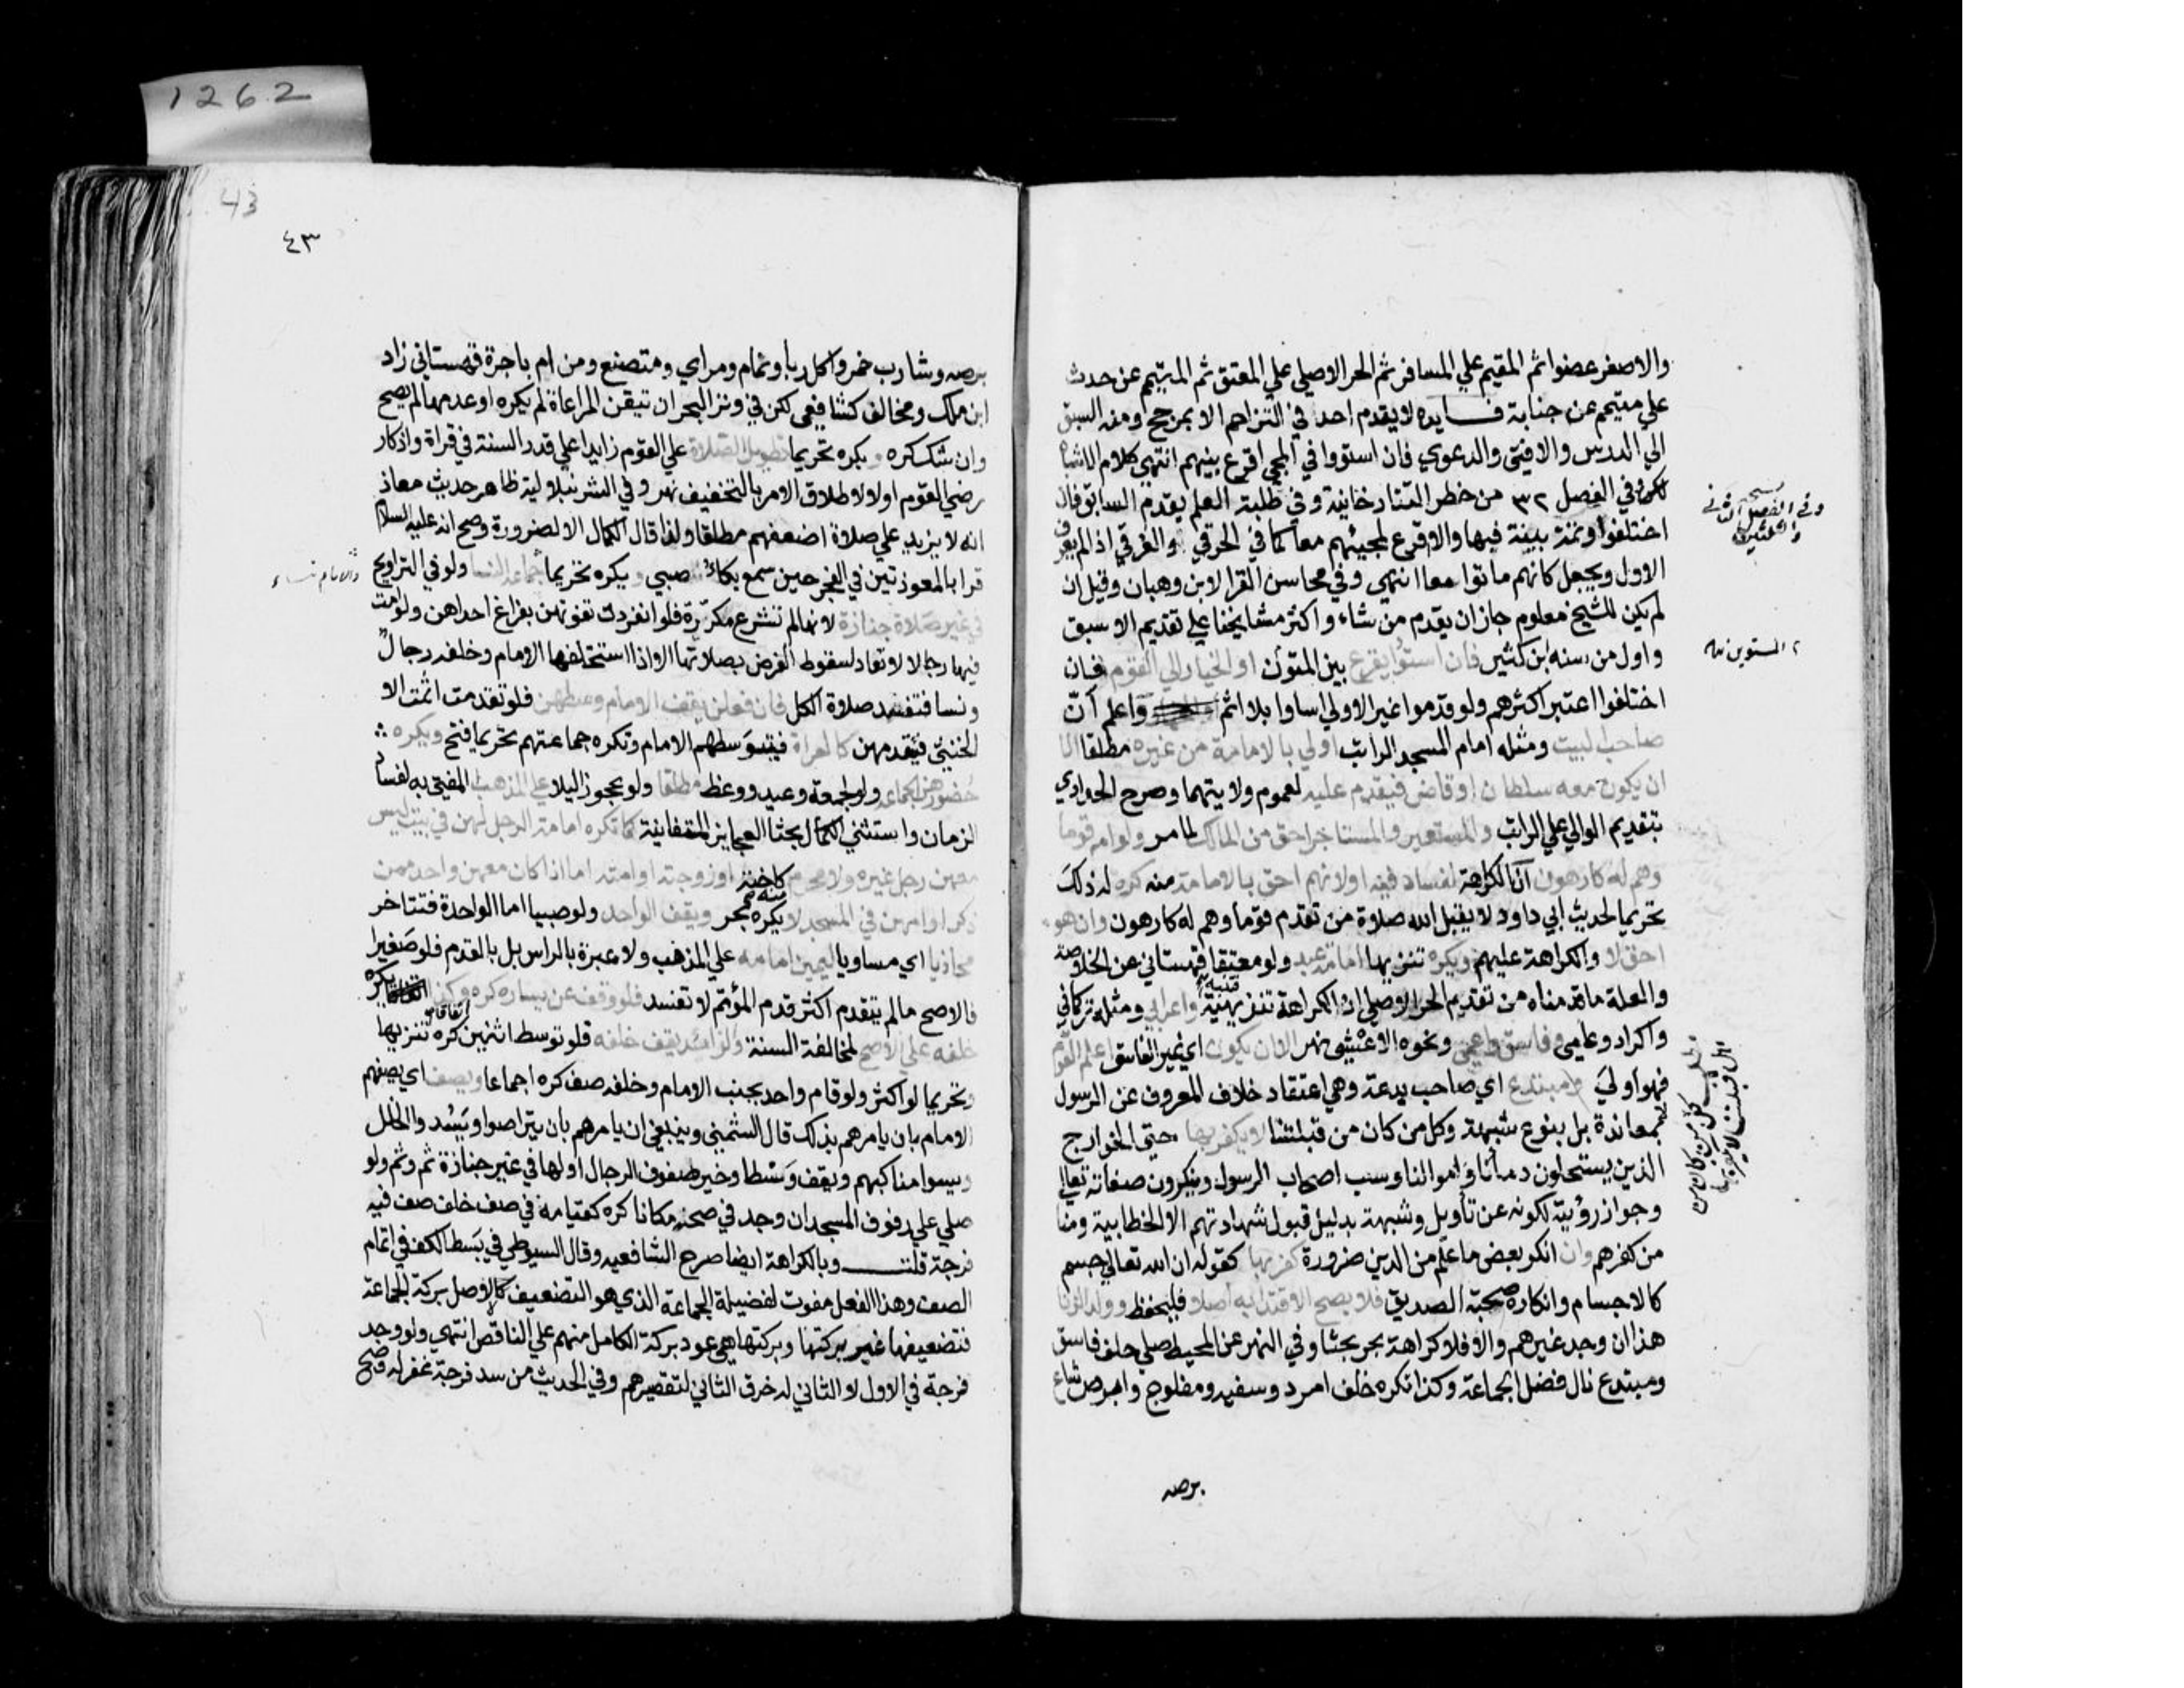 1262
والاصغر عضوا ثم المقيم علي المسافر ثم الحر الاصلي علي المعتق ثم المتيمم عن حدث
علي متيمم عن جنابة فــايده لا يقدم احد في التزاحم الا بمرجح ومنه السبق
الي الدرس والافتي والدعوي فان استووا في المجي اقرع بينهم انتهي كلام الاشباه
لكن وفي الفصل ٣٢ من خطر التتارخانية وفي طلبة العلم يقدم السابق فان
اختلفوا وثمة بينة فيها والا قرع لمجيئهم معا كما في الحرقي والغرقي اذا لم يعرف
الاول ويجعل كانهم ماتوا معا انتهي وفي محاسن القرا لابن وهبان وقيل ان
لم يكن للشيخ معلوم جاز ان يقدم من شاء واكثر مشايخنا علي تقديم الاسبق
واول من سنه ابن كثير فان استووا يقرع بين المستوين او الخيار الي القوم فان
اختلفوا اعتبر اكثرهم ولو قدموا غير الاولي اساوا بلا اثم واعلم ان
صاحب البيت ومثله امام المسجد الراتب اولي بالامامة من غيره مطلقا الا
ان يكون معه سلطان او قاض فيقدم عليه لعموم ولايتهما وصرح الحدادي
بتقديم الوالي علي الراتب والمستعير والمستاجر احق من المالك لما مر ولو ام قوما
وهم له كارهون ان الكراهة لفساد فيه او لانهم احق بالامامة منه كره له ذلك
تحريما لحديث ابي داود لا يقبل الله صلاة من تقدم قوما وهم له كارهون وان هو
احق لا والكراهة عليهم ويكره تنزيها امامة عبد ولو معتقا قهستاني عن الخلاصة
والعلة ما قدمناه من تقديم الحر الاصلي اذ الكراهة تنزيهية واعرابي ومثله تركماني
واكراد وعامي وفاسق واعمي ونحوه الاعشي نهر الا ان يكون اي غير الفاسق اعلم القوم
فهو اولي ومبتدع اي صاحب بدعة وهي اعتقاد خلاف المعروف عن الرسول
لا بمعاندة بل بنوع شبهة وكل من كان من قبلتنا لا يكفر بها حتي الخوارج
الذين يستحلون دمأنا واموالنا وسب اصحاب الرسول وينكرون صفاته تعالي
وجواز رؤيته لكونه عن تأويل وشبهة بدليل قبول شهادتهم الا الخطابية ومنا
من كفرهم وان انكر بعض ما علم من الدين ضرورة كفر بها كقوله ان الله تعالي جسم
كالاجسام وانكاره صحبة الصديق فلا يصح الاقتدا به اصلا فليحفظ وولد الزنا
هذا ان وجد غيرهم والا فلا كراهة بحر بحثا وفي النهر عن المحيط صلي خلف فاسق
ومبتدع نال فضل الجماعة وكذا تكره خلف امرد وسفيه ومفلوج وابرص شاع
برصه
وفي الفصل الثاني
والثلثين
المستوين
مطلب كل من كان من
اهل قبلتنا لا يكفر بها
43
٤٣
برصه وشارب خمر واكل ربا ونمام ومراي ومتصنع ومن ام باجرة قهستاني زاد
ابن ملك ومخالف كشافعي لكن في وتر البحر ان تيقن المراعاة لم يكره او عدمها لم يصح
وان شك كره ويكره تحريما تطويل الصلاة علي القوم زايدا علي قدر السنة في قراة واذكار
رضي القوم اولا لاطلاق الامر بالتخفيف نهر وفي الشرنبلالية ظاهر حديث معاذ
انه لا يزيد علي صلاة اضعفهم مطلقا ولذا قال الكمال الا لضرورة وصح انه عليه السلام
قرا بالمعوذتين في الفجر حين سمع بكاء صبي ويكره تحريما جماعة النسا ولو في التراويح
في غير صلاة جنازة لانها لم تشرع مكررة فلو انفردت تفوتهن بفراغ احداهن ولو امت
فيها رجالا لا تعاد لسقوط الفرض بصلاتها الا اذا استخلفها الامام وخلفه رجال
ونسا فتفسد صلاة الكل فان فعلن يقف الامام وسطهن فلو تقدمت اثمت الا
الخنثي فيتقدمهن كالعراة فيتوسطهم الامام وتكره جماعتهم تحريما فتح ويكره
حضورهن الجماعة ولو لجمعة وعيد ووعظ مطلقا ولو عجوز ليلا علي المذهب المفتي به لفساد
الزمان واستثني الكمال بحثا العجايز المتفانية كما تكره امامة الرجل لهن في بيت ليس
معهن رجل غيره ولا محرم منه كاخته او زوجته او امته اما اذا كان معهن واحد ممن
ذكر او امهن في المسجد لا يكره بحر ويقف الواحد ولو صبيا اما الواحدة فتتاخر
محاذيا اي مساويا ليمين امامه علي المذهب ولا عبرة بالراس بل بالقدم فلو صغيرا
فالاصح ما لم يتقدم اكثر قدم المؤتم لا تفسد فلو وقف عن يساره كره وكذا اتفاقا يكره
خلفه علي الاصح لمخالفة السنة والزائد يقف خلفه فلو توسط اثنين كره تنزيها
وتحريما لو اكثر ولو قام واحد بجنب الامام وخلفه صف كره اجماعا ويصف اي يصفهم
الامام بان يامرهم بذلك قال الشمني وينبغي ان يامرهم بان يتراصوا ويسد والخلل
ويسوا مناكبهم ويقف وسطا وخير صفوف الرجال اولها في غير جنازة ثم وثم ولو
صلي علي رفوف المسجد ان وجد في صحنه مكانا كره كقيامه في صف خلف صف فيه
فرجة قلتــ وبالكراهة ايضا صرح الشافعيه وقال السيوطي في بسط الكف في اتمام
الصف وهذا الفعل مفوت لفضيلة الجماعة الذي هو التضعيف كالاصل بركة الجماعة
فتضعيفها غير بركتها وبركتها هي عود بركة الكامل منهم علي الناقص انتهي ولو وجد
فرجة في الاول لا الثاني له خرق الثاني لتقصيرهم وفي الحديث من سد فرجة غفر له وصح
والامام نساء